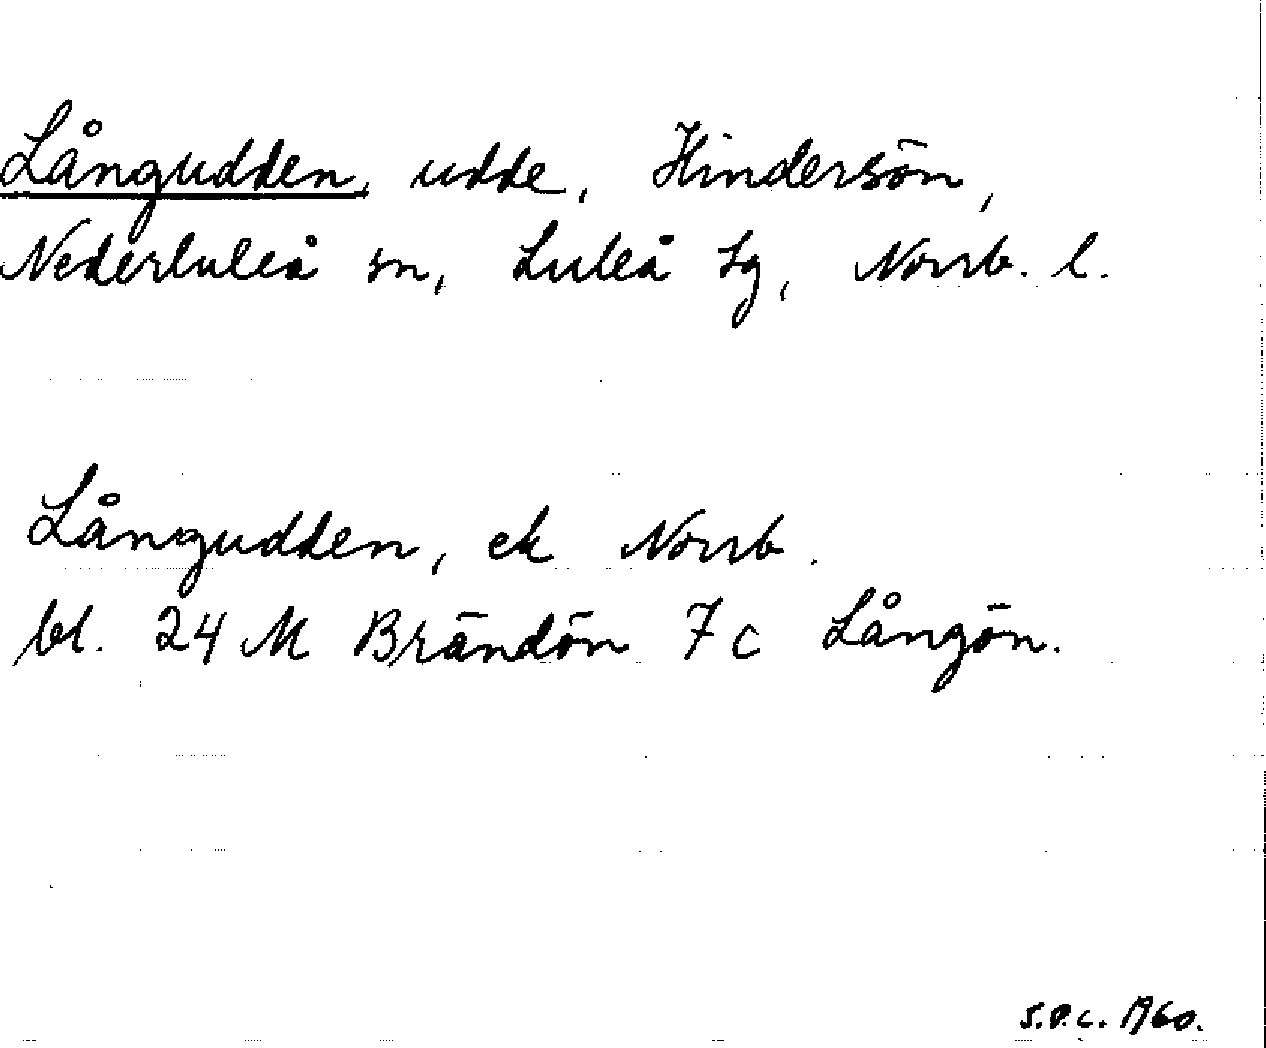 Långudden, udde, Hindersön,
Nederluleå sn, Luleå tg, Norrb. l.
Långudden, ek Norrb.
bl. 24 M Brändön 7 c Långön.
S.P.C. 1960.